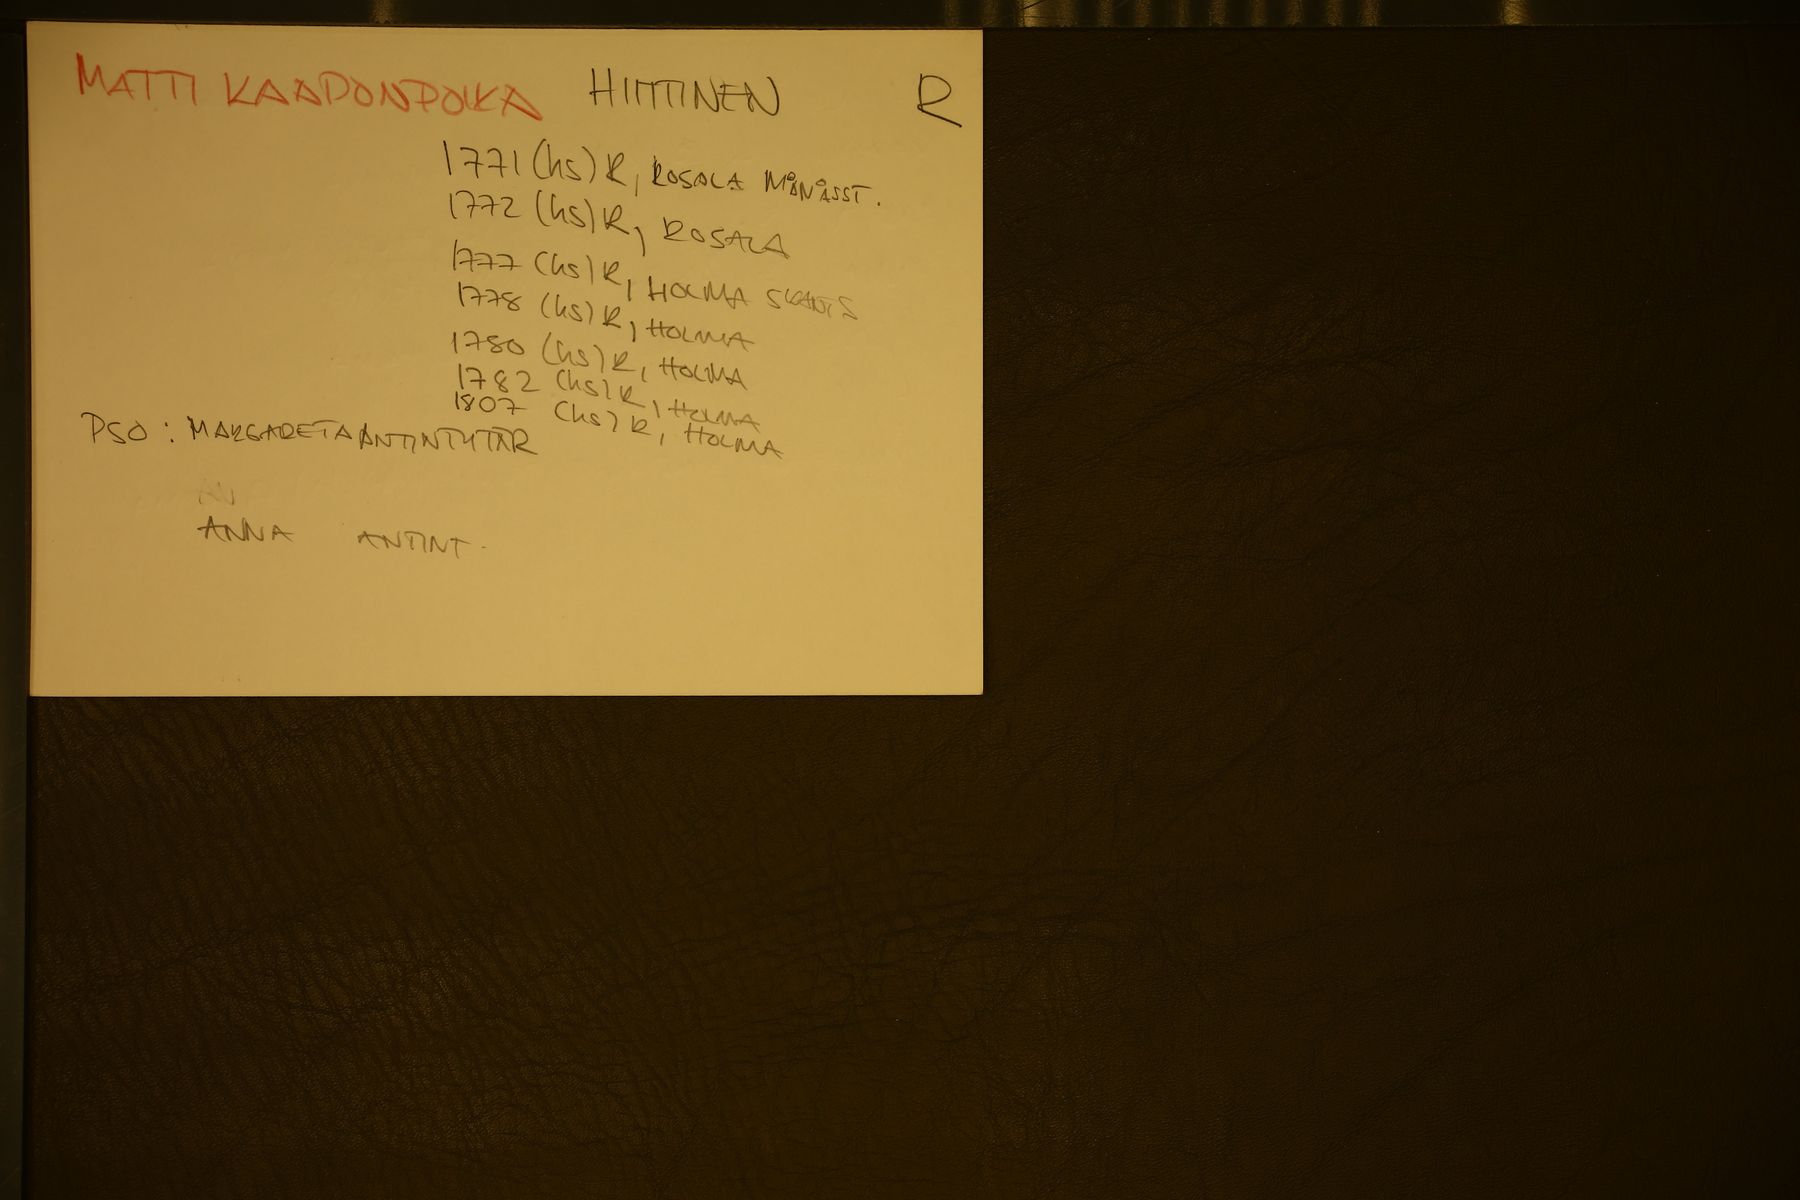 MATTI KAAPONPOIKA HIITTINEN R
1771 (hs) R, ROSALA MÅNÅSST.
1772 (hs) R, ROSALA
1777 (hs) R, HOLMA
1778 (hs) R, HOLMA
1780 (hs) R, HOLMA
1782 (hs) R, HOLMA
1807 (hs) R, HOLMA
PSO: MARGARETA ANTINTYTÄR
AN
ANNA ANTINT.